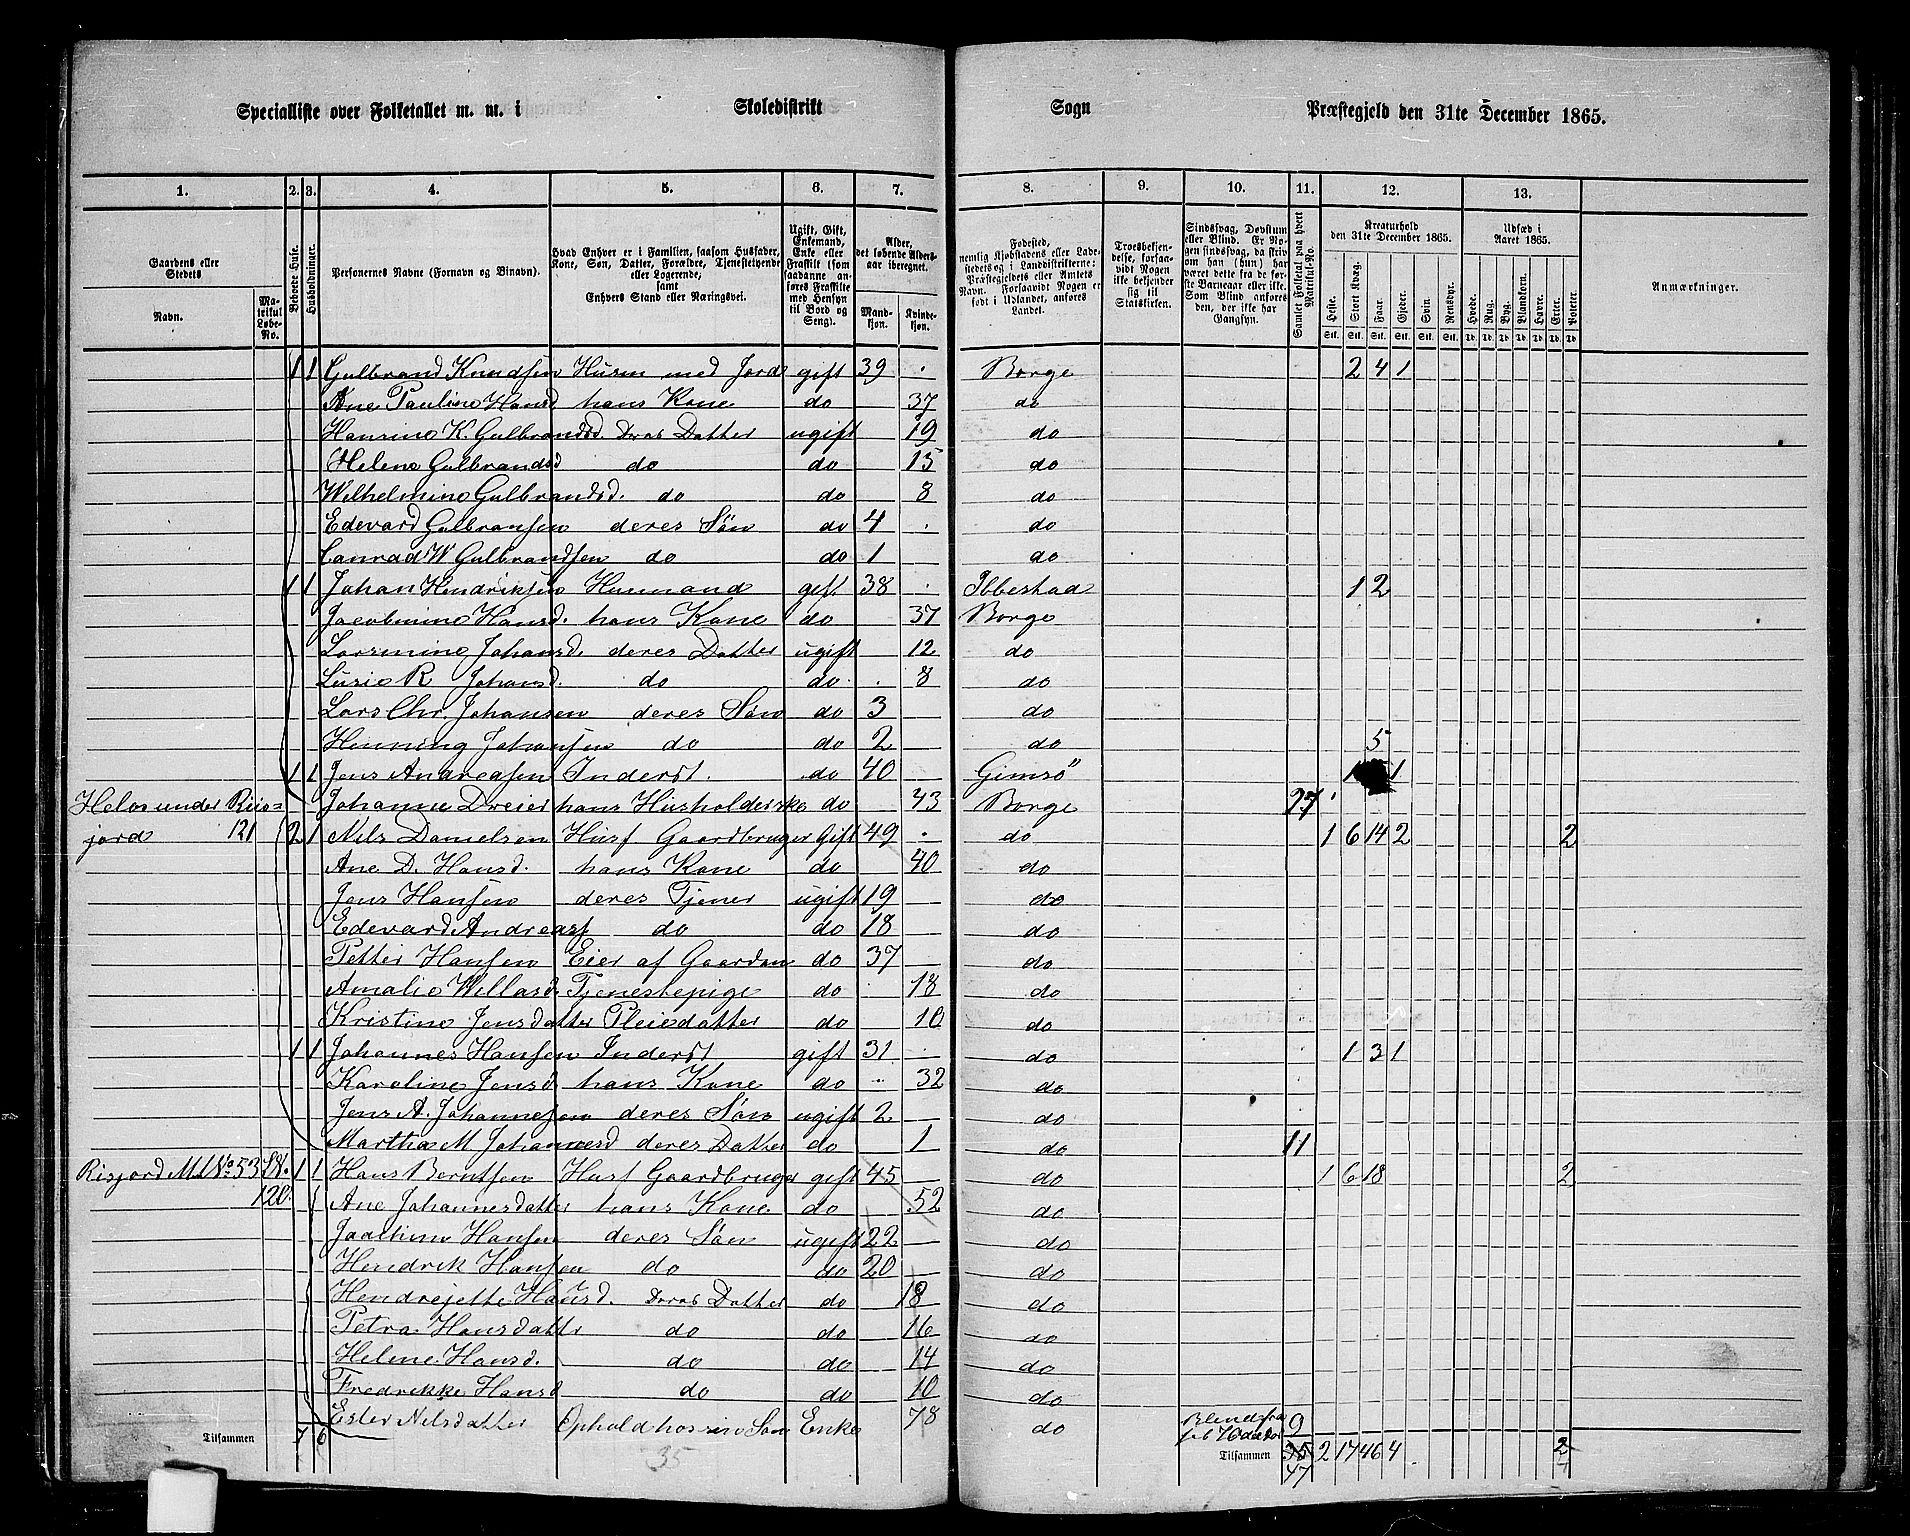 Specialliste over Folketallet m. m. i Skoledistrikt Sogn Præstegjeld den 31te December 1865.
1. 2. 3. 4. 5. 6. 7. 8. 9. 10. 11. 12. 13.
Gaardens eller Stedets
Navn. Matrikul Løbe-No.
Beboede Huse.
Husholdninger.
Personernes Navne (Fornavn og Binavn).
Hvad Enhver er i Familien, saasom Husfader, Kone, Søn, Datter, Forældre, Tjenestetyende eller Logerende; samt Enhvers Stand eller Næringsvei.
Ugift, Gift, Enkemand, Enke eller Fraskilt (som saadanne anføres Fraskilte med Hensyn til Bord og Seng).
Alder, det løbende Aldersaar iberegnet.
Mandkjøn. Kvindekjøn.
Fødested, nemlig Kjøbstadens eller Ladestedets og i Landdistrikterne: Præstegjeldets eller Amtets Navn. Forsaavidt Nogen er født i Udlandet, anføres Landet.
Troesbekjendelse, forsaavidt Nogen ikke bekjender sig til Statskirken.
Sindssvag, Døvstum eller Blind. Er Nogen sindssvag, da skriv om han (hun) har været dette fra de første Barneaar eller ikke. Som Blind anføres den, der ikke har Gangsyn.
Samlet Folketal paa hvert Matrikul-No.
Kreaturhold den 31te December 1865.
Heste. Stort Kvæg. Faar. Gjeder. Svin. Rensdyr.
Udsæd i Aaret 1865.
Hvede. Rug. Byg. Blandkorn. Havre. Erter. Poteter.
Anmærkninger.
1 1 Gulbrand Knudsen Husm med Jord gift 39 Borge 2 4 1
Ane Pauline Hansd hans Kone do 37 do
Hansine K. Gulbrandsd. Deres Datter ugift 19 do
Helene Gulbrandsd do do 15 do
Wilhelmine Gulbrandsd. do do 8 do
Edevard Gulbransen deres Søn do 4 do
Conrad W Gulbrandsen do do 1 do
1 1 Johan Hendriksen Husmand gift 38 Ibbestad 1 2
Jacobmine Hansd. hans Kone do 37 Borge
Larsmine Johansd. deres Datter ugift 12 do
Lusie R Johansd. do do 8 do
Lars Chr. Johansen deres Søn do 3 do
Henning Johansen do do 2 do 5
1 1 Jens Andreasen Inderst. do 40 Gimsø 1 1
Helos under Riis= Johanne Dreier hans Husholderske do 43 Borge 27
jord 121 2 1 Nils Danielsen Husf Gaardbruger Gift 49 do 1 6 14 2 2
Ane D. Hansd. hans Kone do 40 do
Jens Hansen deres Tjener ugift 19 do
Edevard Andreasf do do 18 do
Petter Hansen Eier af Gaarden do 37 do
Amalie Willasd. Tjenestepige do 18 do
Kristine Jensdatter Pleiedatter do 10 do
1 1 Johannes Hansen Inderst gift 31 do 1 3 1
Karoline Jensd hans Kone do 32 do
Jens A. Johannesen deres Søn ugift 2 do
Martha M Johannesd deres Datter do 1 do 11
Risjord M No 53 L. 1 1 Hans Berntsen Husf Gaardbruger gift 45 do 1 6 18 2
120 Ane Johannesdatter hans Kone do 52 do
Joachim Hansen deres Søn ugift 22 do
Hendrik Hansen do do 20 do
Hendrejette Hansd. Deres Datter do 18 do
Petra Hansdatter do do 16 do
Helene Hansd. do do 14 do
Fredrikke Hansd do do 10 do
Ester Nilsdatter Ophold hos sin Søn Enke 78 do 9
Tilsammen 7 6 35 Tilsammen 35 2 17 46 4 2
47